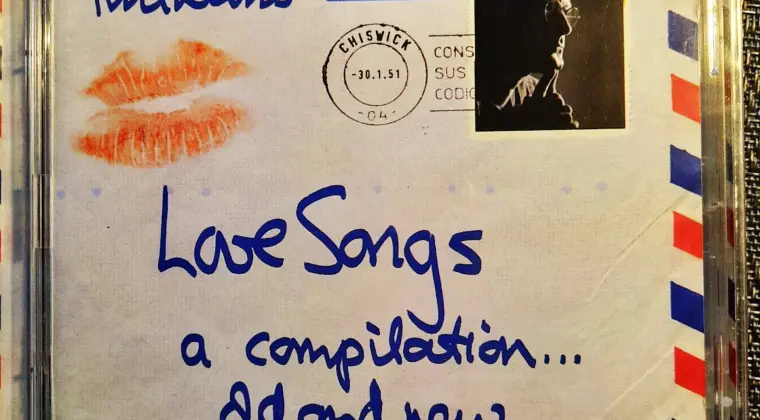 CHISWICK
-30.1.51
-04-
CONS
SUS
CODIC
Love Songs
a compilation...
old and new